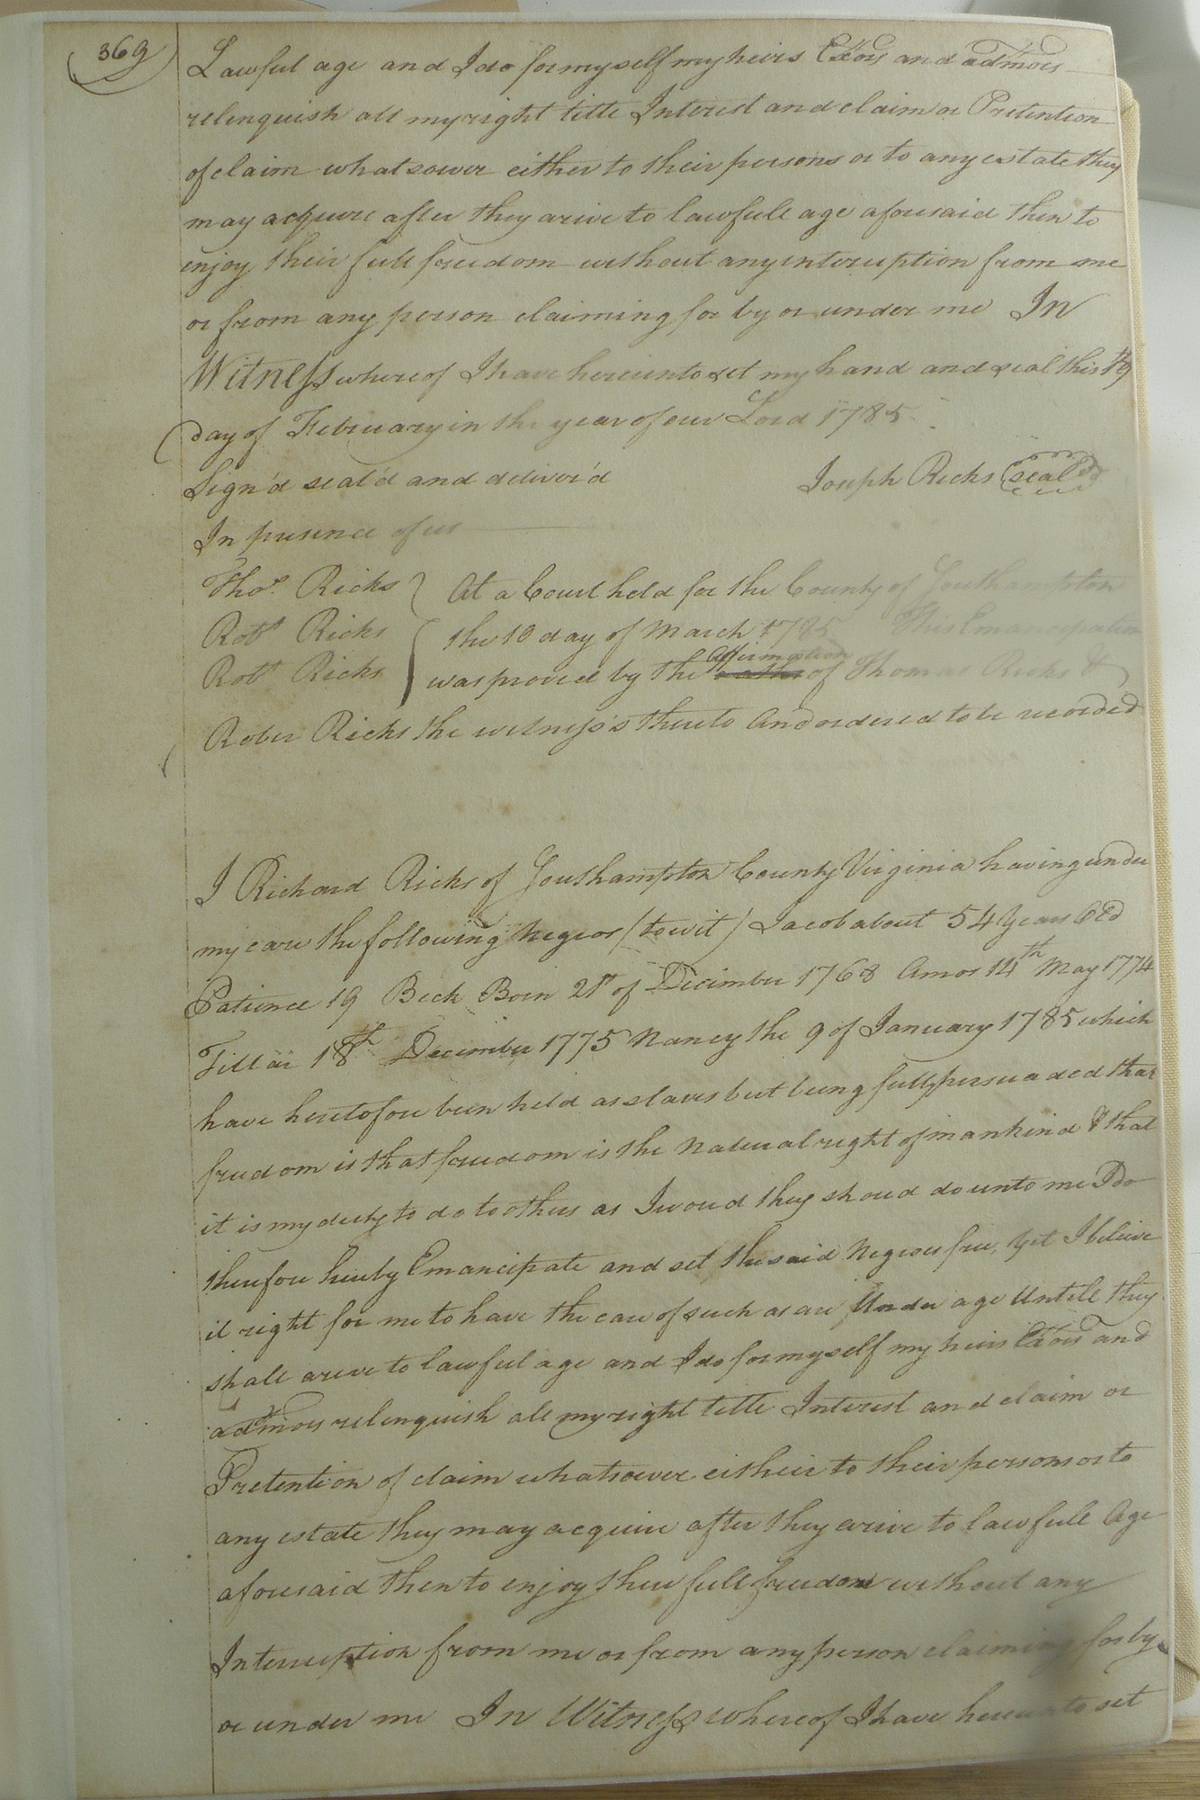 369
Lawful age and I do for my self my heirs Exors and admors
relenquish all my right title Interest and claim or Pretention
of claim whatsower either to their persons or to any estate they
may acquire after they arive to lawfull age aforesaid then to
enjoy their full freedom without any interuption from me
or from any person claiming for by or under me In
Witness whereof I have hereunto set my hand and seal this
day of February in the year of our Lord 1785
Sign'd seal'd and deliver'd Joseph Ricks seal
In presence of us
Thos. Ricks At a Court held for the County of Southampton
Robt Ricks the 10 day of March 1785 This Emancipation
Robt Ricks was proved by the Affirmation of Thomas Ricks &
Rober Ricks the witness's thereto And ordered to be recorded
I Richard Ricks of Southampton County Virginia having under
my care the following Negros (to wit) Jacob about 54 Years Old
Patience 19 Beck Born 21st of Decimber 1768 Amos 14th May 1774
18th December 1775 Nancy the 9 of January 1785 which
have heretofore been held as slaves but being fully persuaded that
freedom is that freedom is the Natural right of mankind & that
it is my duty to do to others as I woud they shoud do unto me I do
therefore hereby Emancipate and set the said Negroes free, Yet I beleive
it right for me to have the care of such as are Under age Untill they
shall arive to lawful age and I do for my self my heirs Exors and
admors relenquish all my right title Interest and claim or
Pretention of claim whatsower either to their persons or to
any estate they may acquire after they arive to lawfull Age
aforesaid then to enjoy their full freedom without any
Interruption from me or from any person claiming for by
or under me In Witness whereof I have hereunto set